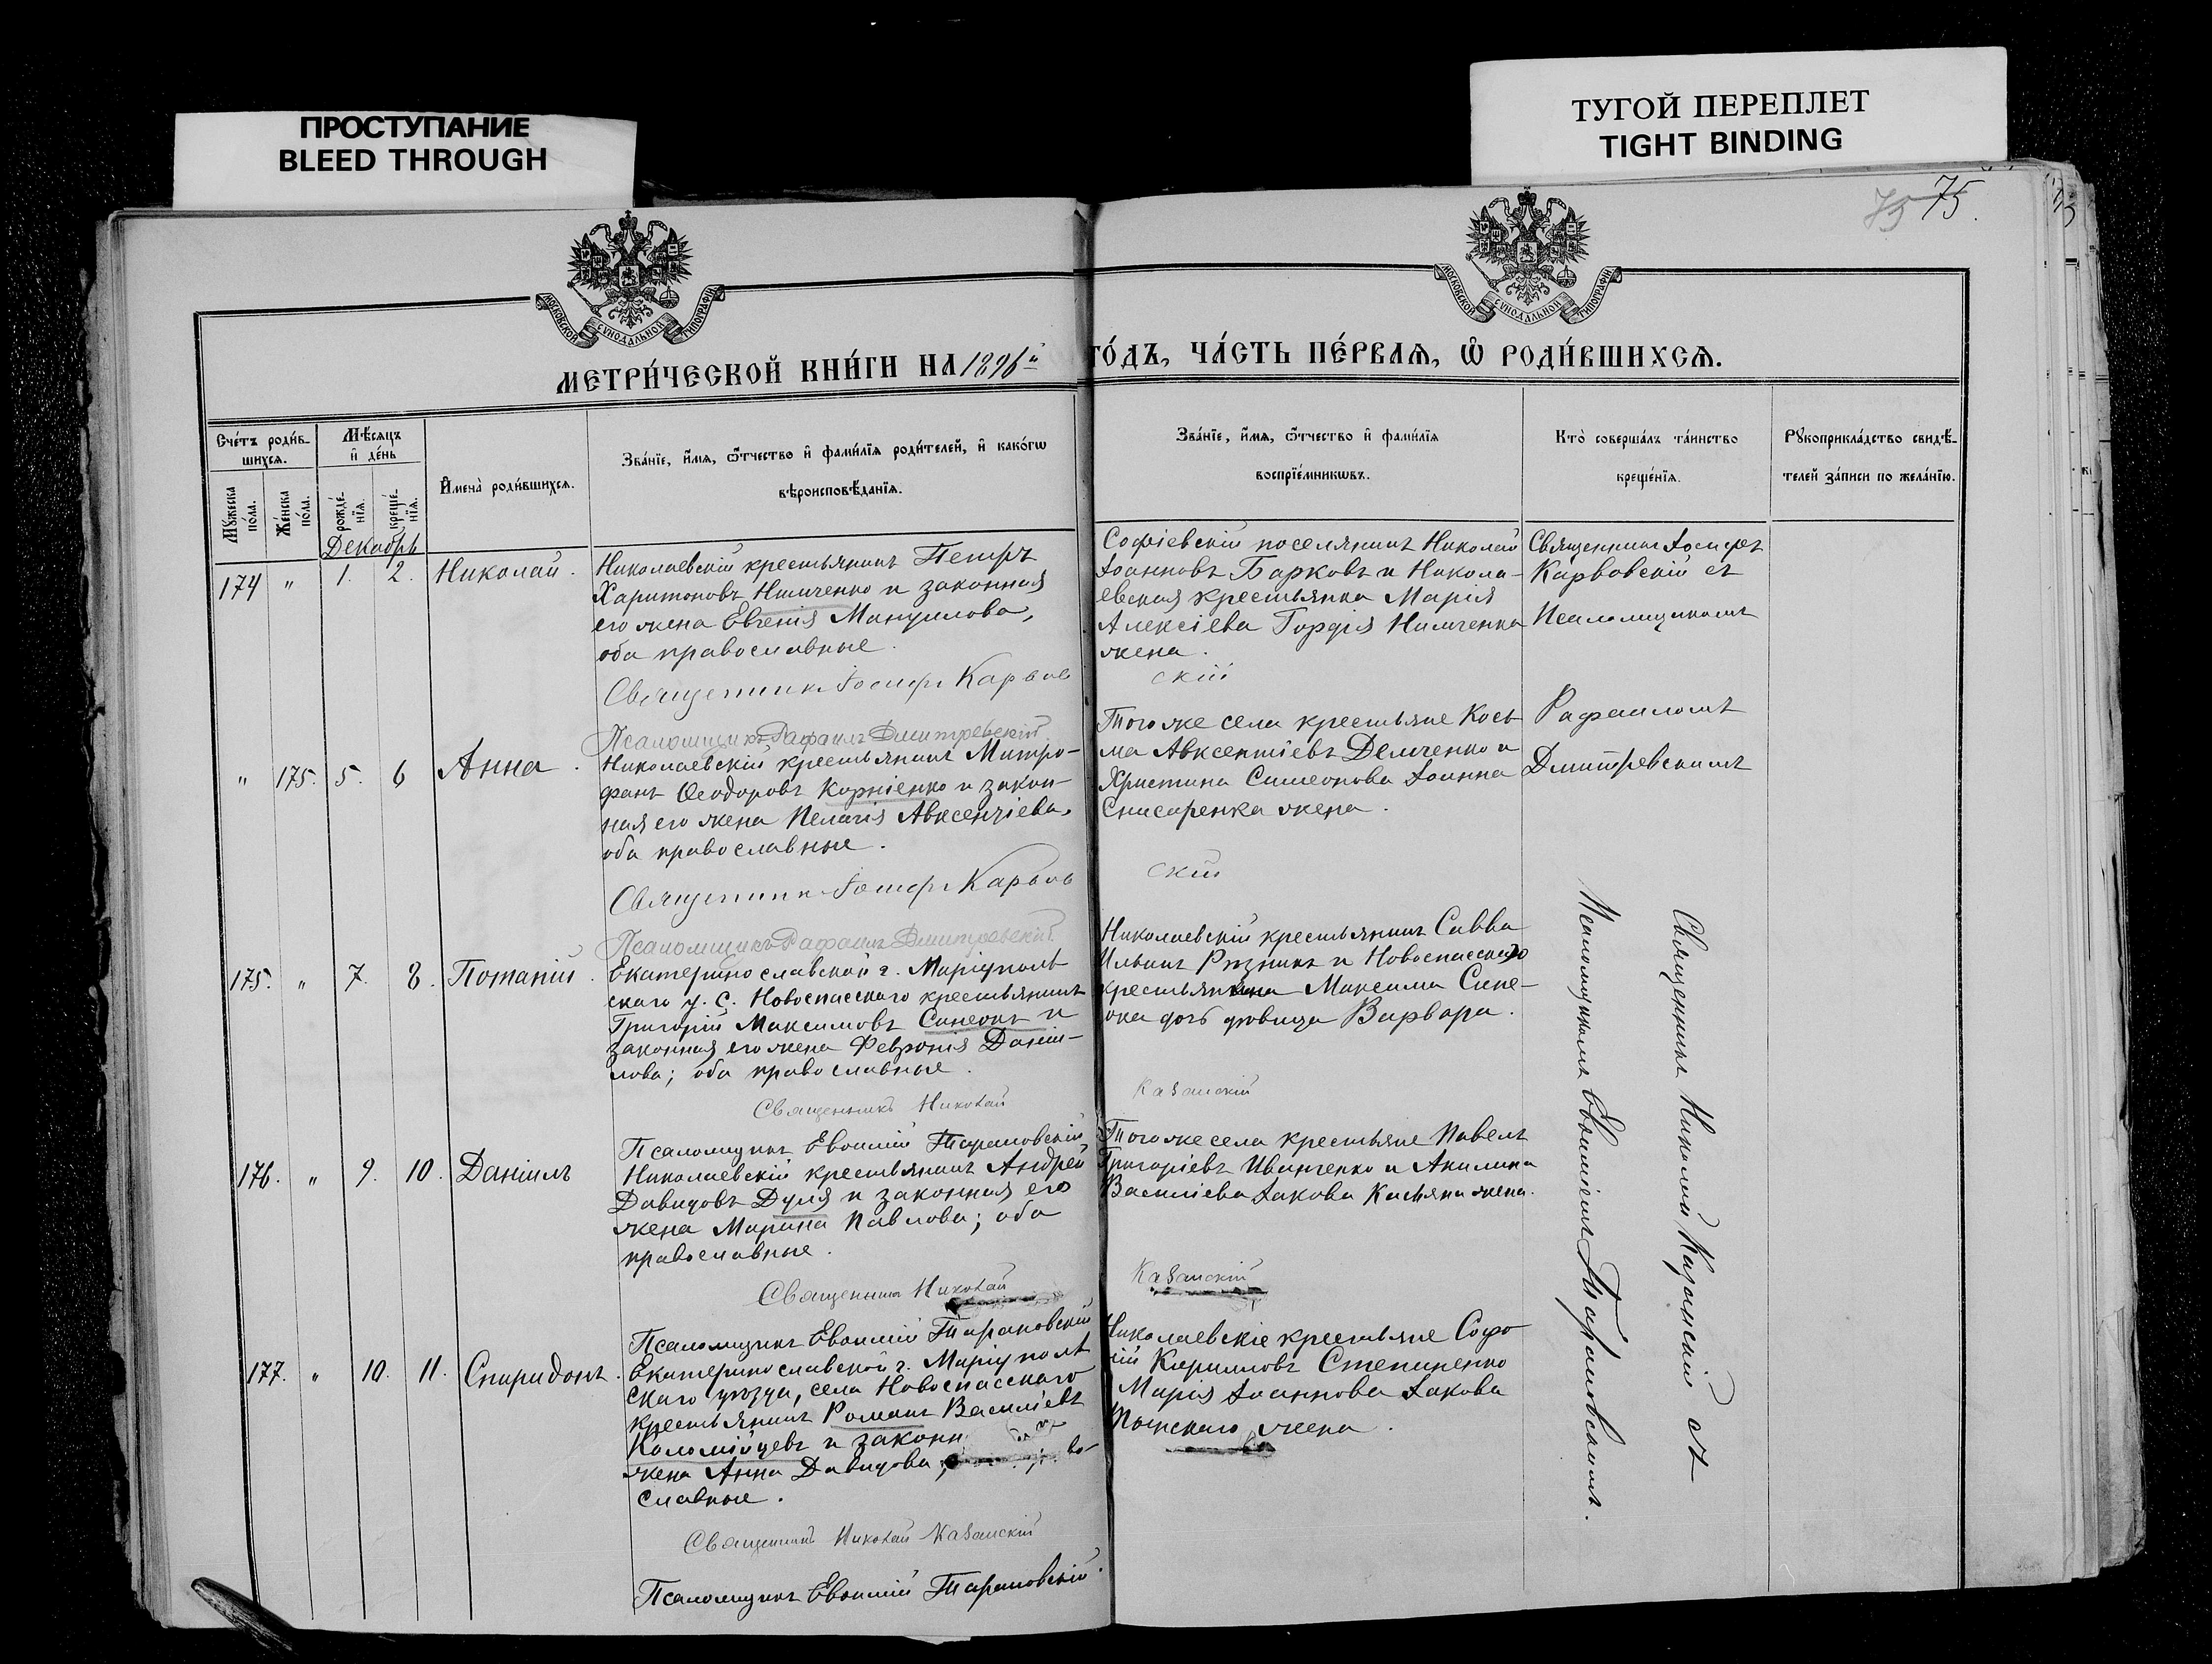 ПРОСТУПАНИЕ
BLEED THROUGH
ТУГОЙ ПЕРЕПЛЕТ
TIGHT BINDING
75 75.
МОСКОВСКОЙ СѴНОДАЛЬНОЙ ТИПОГРАФІИ
МОСКОВСКОЙ СѴНОДАЛЬНОЙ ТИПОГРАФІИ
МЕТРИ́ЧЕСКОЙ КНИ́ГИ НА 1896й ГО́ДЪ, ЧА́СТЬ ПЕ́РВАЯ, Ѡ҆ РОДИ́ВШИХСЯ.
Сче́тъ роди́в-
шихся.
Мꙋ́жеска по́ла.
Же́нска по́ла.
Мѣ́сяцъ и҆ де́нь
рожде́-нїя.
креще́-нїя.
И҆мена̀ роди́вшихся.
Зва́нїе, и҆́мя, ѻ҆́тчество и҆ фами́лїя роди́телей, и҆ како́гѡ
вѣроисповѣ́данїя.
Зва́нїе, и҆́мя, ѻ҆́тчество и҆ фами́лїя
воспрїе́мникѡвъ.
Кто̀ соверша́лъ та́инство
креще́нїя.
Рꙋкоприкла́дство свидѣ́-
телей за́писи по жела́нїю.
Декабрь
174 " 1. 2. Николай.
Николаевскій крестьянинъ Петръ
Харитоновъ Нимченко и законная
его жена Евгенія Мануилова,
оба православные.
Священникъ Іосифъ Карвов
скій
Псаломщикъ Рафаилъ Дмитревскій
Софіевскій поселянинъ Николай
Іоанновъ Барковъ и Никола-
евская крестьянка Марія
Алексіева Гордія Нимченка
жена.
Священникъ Іосифъ
Карвовскій съ
Псаломщикомъ
Рафаиломъ
Дмитревскимъ
" 175. 5. 6 Анна.
Николаевскій крестьянинъ Митро-
фанъ Ѳеодоровъ Корніенко и закон-
ная его жена Пелагія Авксентіева,
оба православные.
Священникъ Іосифъ Карвов
скій
Псаломщикъ Рафаилъ Дмитревскій
Того же села крестьяне Кось-
ма Авксентіевъ Демченко и
Христина Симеонова Іоанна
Снисаренка жена.
175. " 7. 8. Потапій.
Екатеринославской г. Маріуполь
скаго у. с. Новоспасскаго крестьянинъ
Григорій Максимовъ Синеокъ и
законная его жена Февронія Даніи-
лова; оба православные.
Священникъ Николай
Казанскій
Псаломщикъ Евѳимій Тарановскій
Николаевскій крестьянинъ Савва
Ильинъ Рѣзникъ и Новоспасскаго
Максима Сине-
ока дочь дѣвица Варвара.
176. " 9. 10. Даніилъ
Николаевскій крестьянинъ Андрей
Давидовъ Дуля и законная его
жена Марина Павлова; оба
православные.
Священникъ Николай
Казанскій
Псаломщикъ Евѳимій Тарановскій
Того же села крестьяне Павелъ
Григоріевъ Иванченко и Акилина
Василіева Іакова Касьяна жена.
177. " 10. 11. Спиридонъ.
Екатеринославской г. Маріуполь
скаго уѣзда, села Новоспасскаго
крестьянинъ Романъ Василіевъ
Коломійцевъ и законн
жена Анна Давидова;
славные.
Священникъ Николай Казанскій
Псаломщикъ Евѳимій Тарановскій.
Николаевскіе крестьяне Софо
ній Кирилловъ Степаненко
Марія Іоаннова Іакова
жена.
Священникъ Николай Казанскій съ
Псаломщикомъ Евѳиміемъ Тарановскимъ.